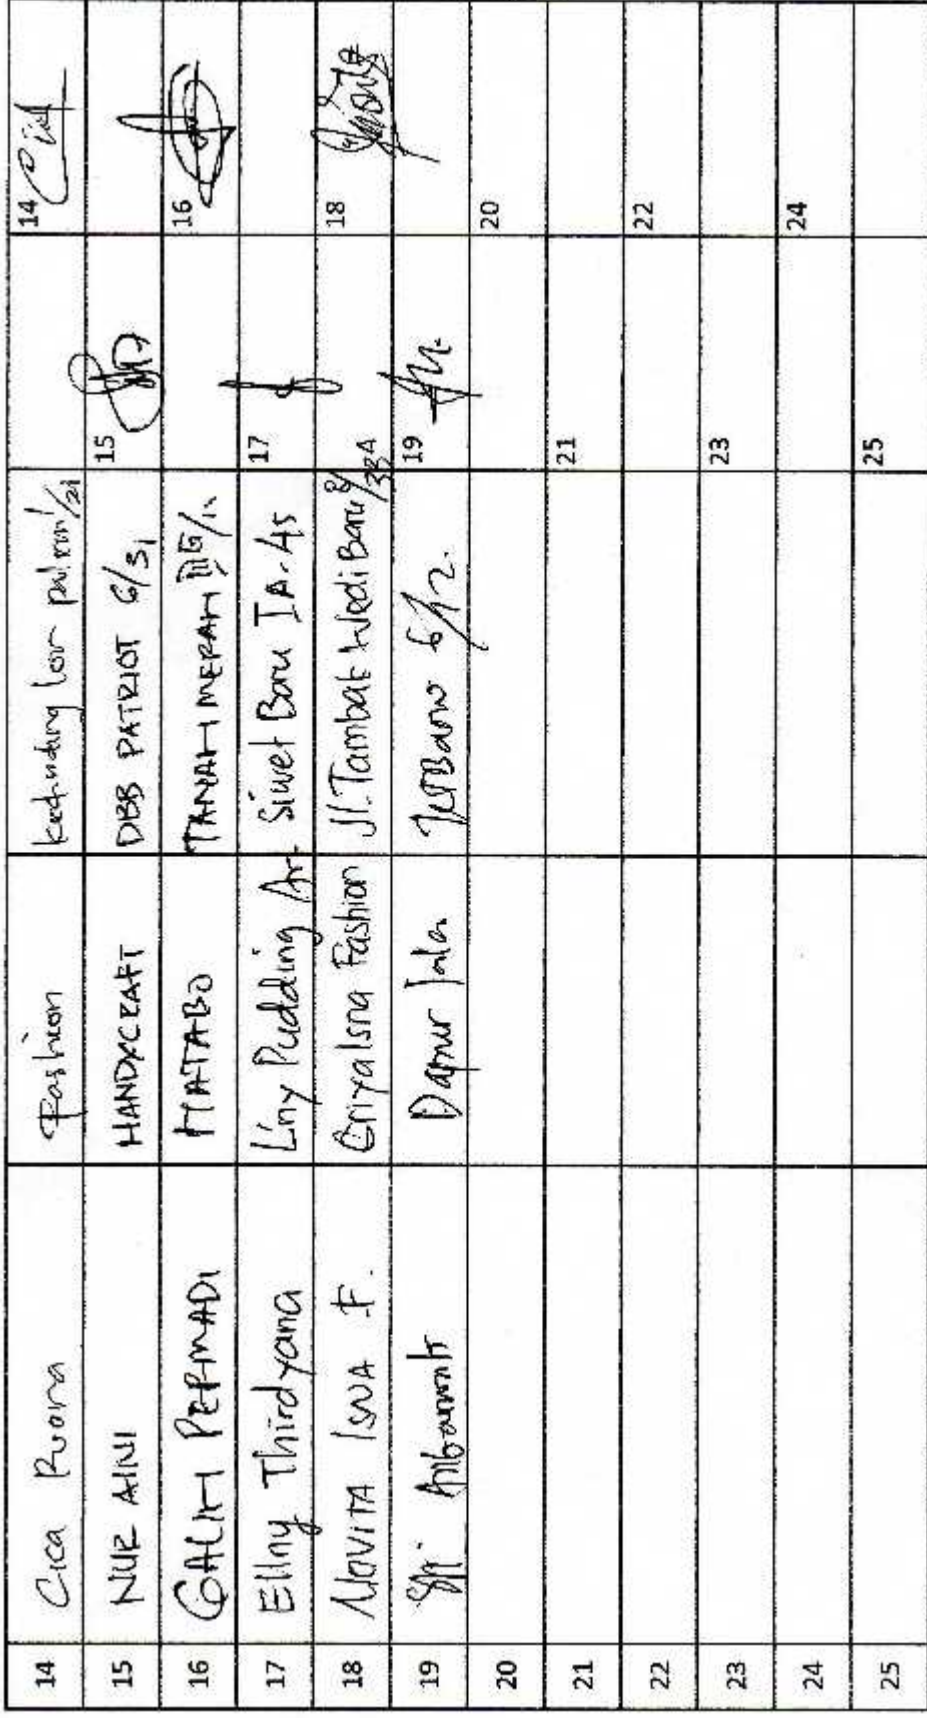 14 Cica Fashion Kedinding lor 14
15 NUR AINI HANDXCRAFT DBB PATRIOT 6/31 15
16 GALIH PERMADI MATABO TANAH MERAH 16
17 Ellny Thirdyana Liny Pudding Art Siwet Baru IA. 45 17
18 NOVITA ISNA F. Griyalsna Fashion Jl. Tambak Wedi Baru 18
19 Dapur 19
20 20
21 21
22 22
23 23
24 24
25 25